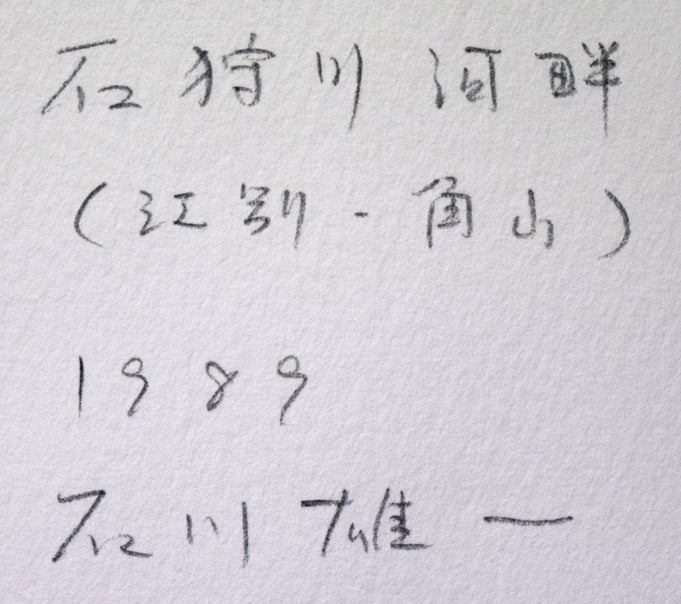 石狩川河畔
(江別・角山)
1989
石川雄一